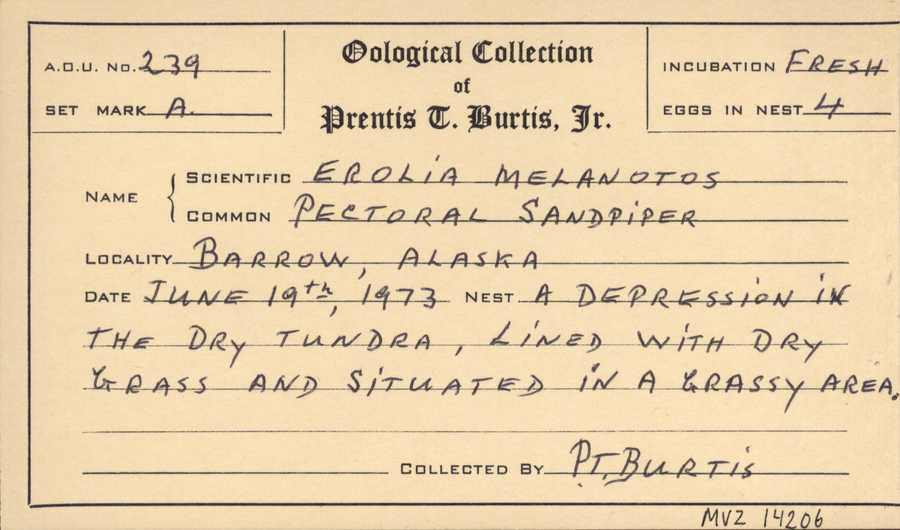 A.O.U. No. 239
SET MARK A.
Oological Collection
of
Prentis T. Burtis, Jr.
INCUBATION FRESH
EGGS IN NEST 4
NAME
SCIENTIFIC EROLIA MELANOTOS
COMMON PECTORAL SANDPIPER
LOCALITY BARROW, ALASKA
DATE JUNE 19th, 1973 NEST A DEPRESSION IN
THE DRY TUNDRA, LINED WITH DRY
GRASS AND SITUATED IN A GRASSY AREA.
COLLECTED BY P.T. BURTIS
MVZ 14206